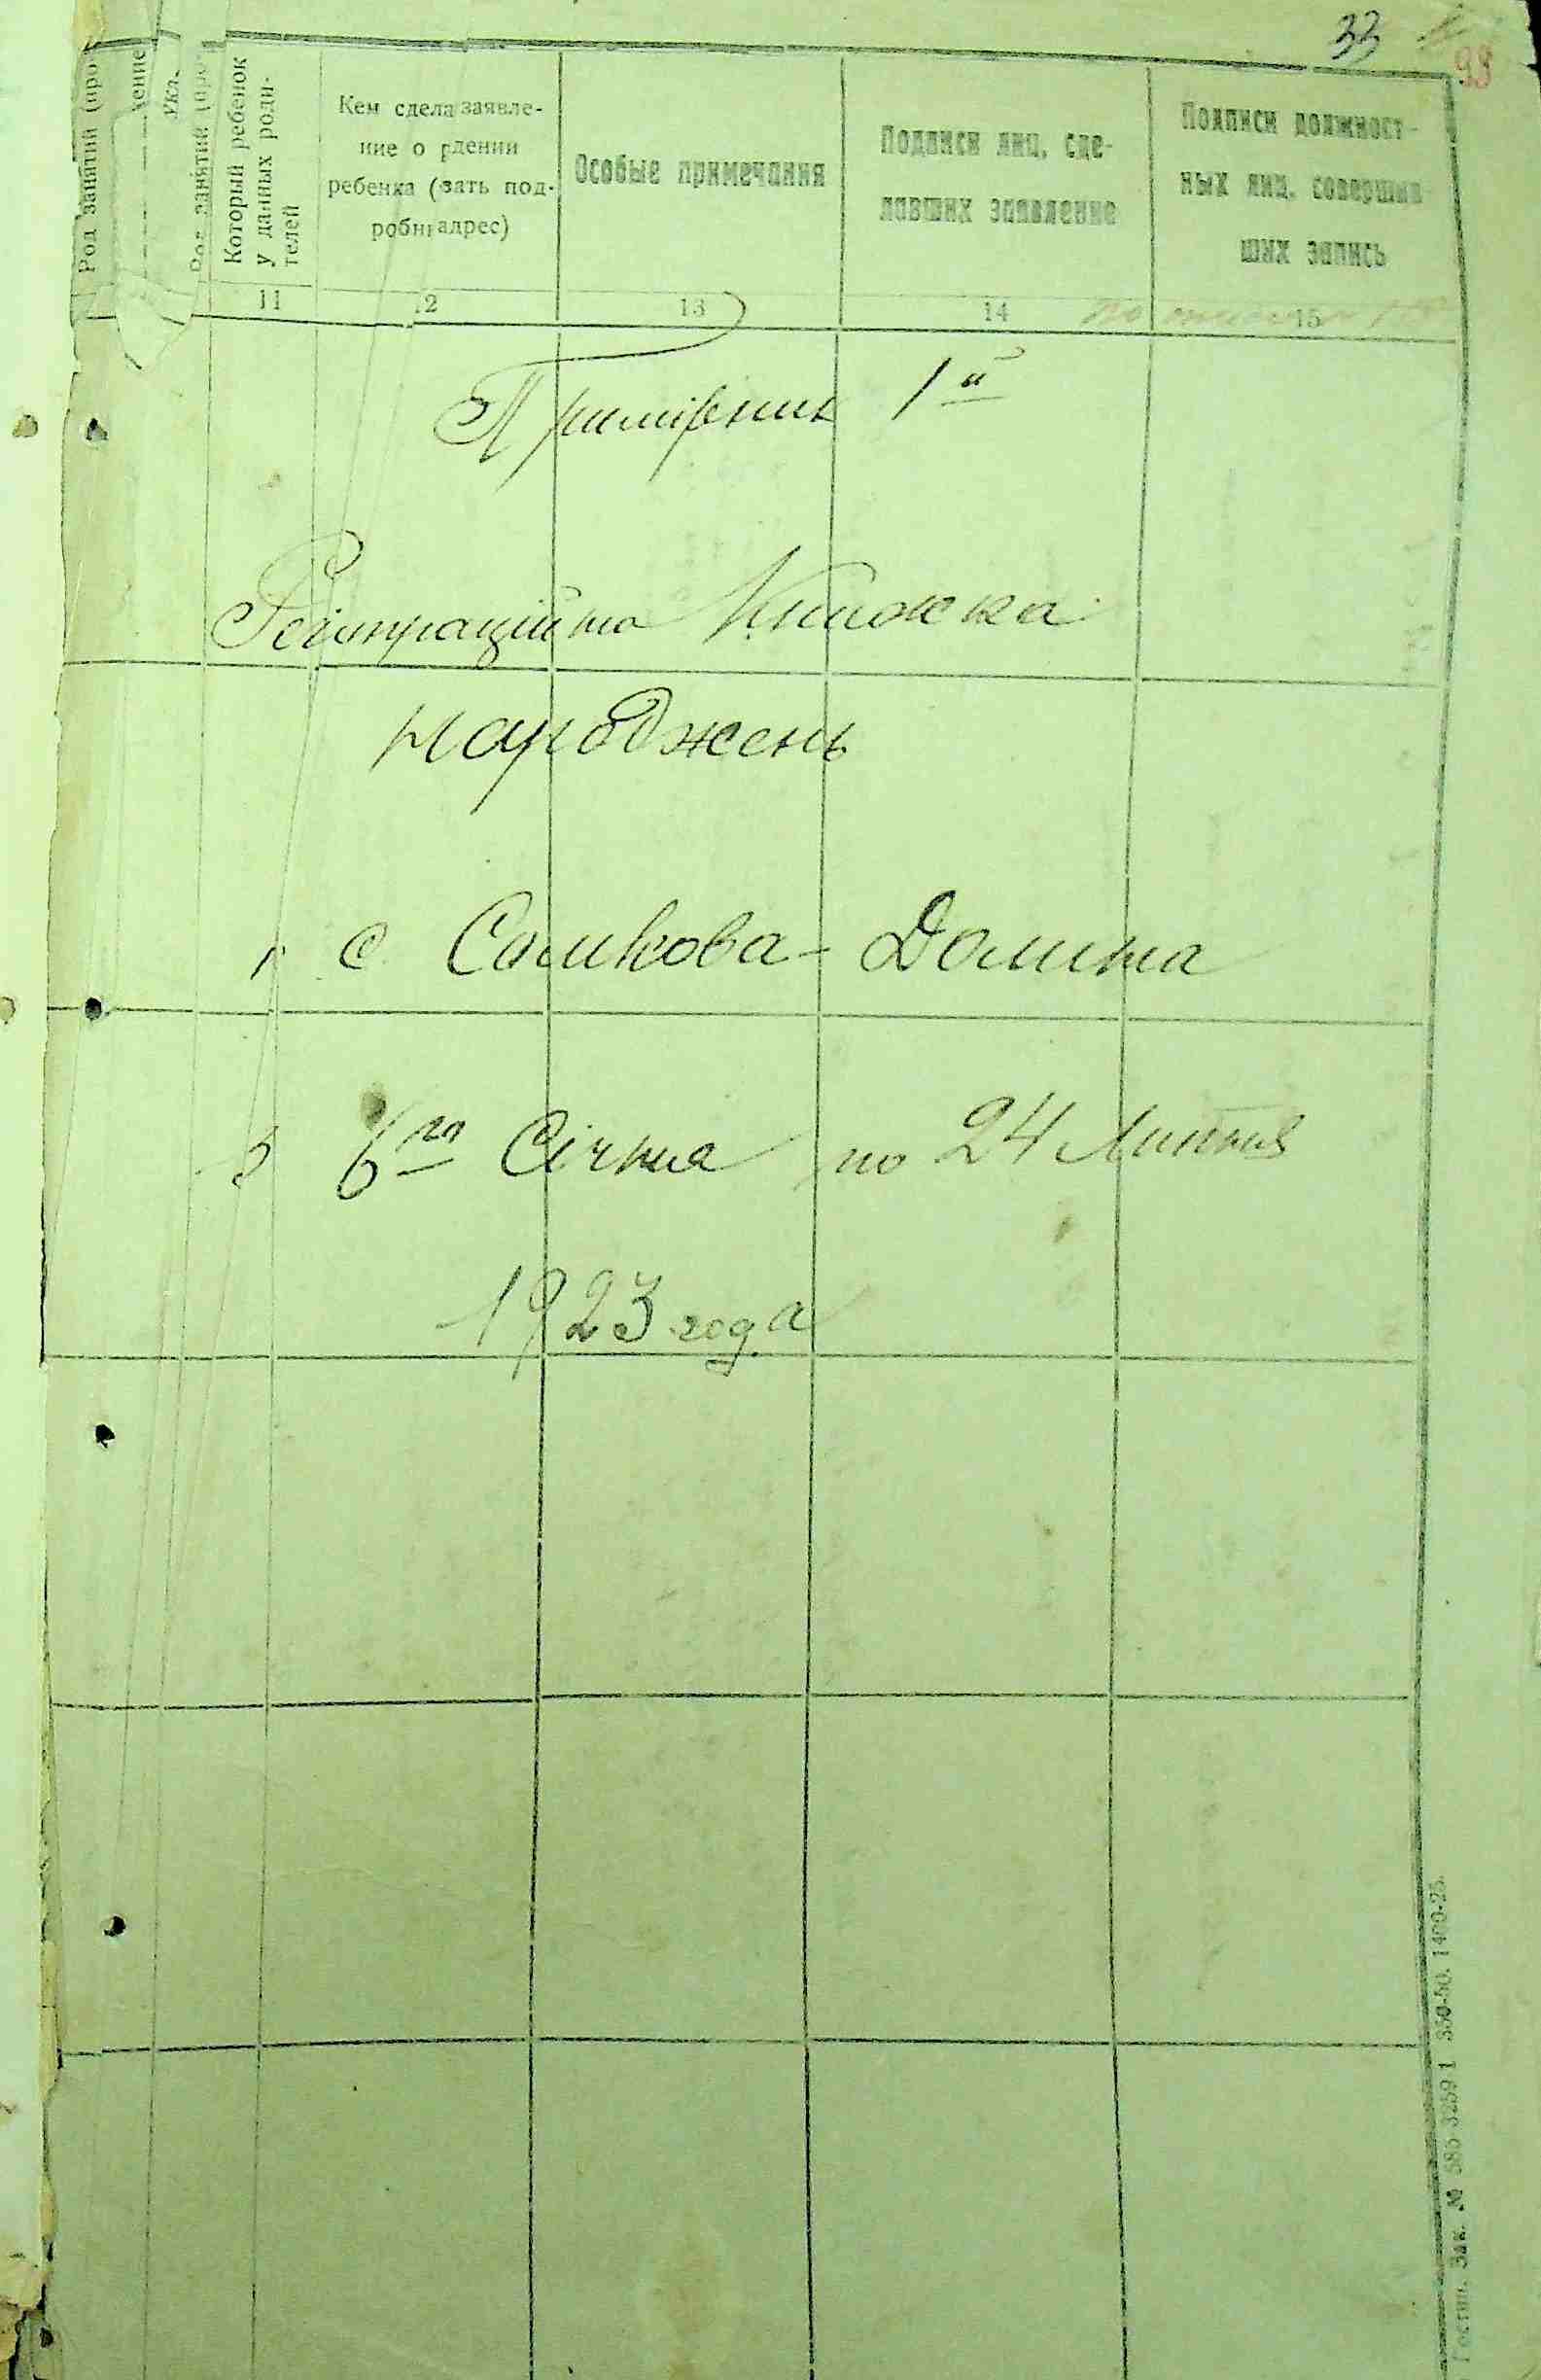 33
93
Род занятий (про
жение
укл.
Род занятий (про-
Который ребенок
у данных роди-
телей
Кем сдела заявле-
ние о рдении
ребенка (зать под-
робны адрес)
Особые примечания
Подписи лиц, сде-
лавших заявление
Подписи должност-
ных лиц, совершив-
ших запись
11 12 13 14 15
Примірник 1й
Реєстраційна Книжка
народжень
с. Сошкова-Долина
З 6го Січня по 24 Липня
1923 года
Гостип. Зак. № 585-3259 1 350-50. 1400-25.